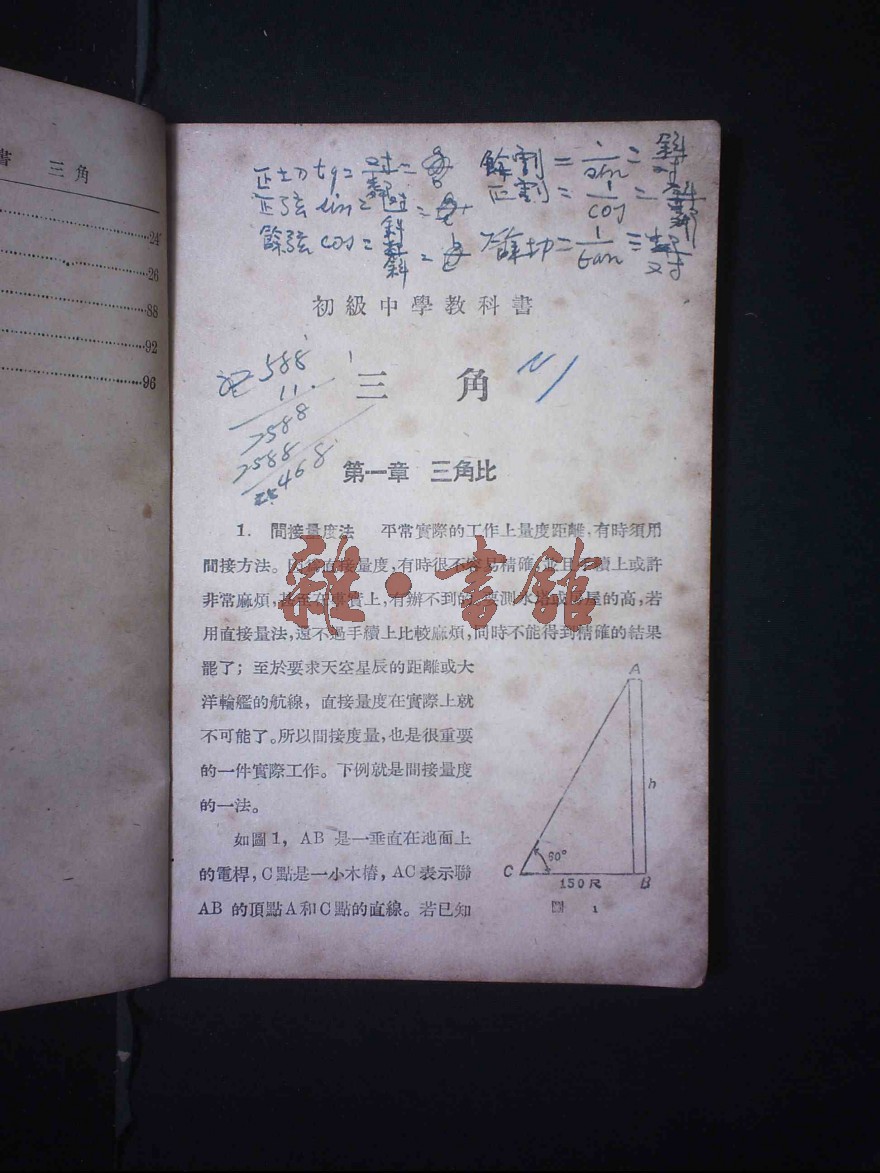 書 三角
24
26
88
92
96
正切 tg=
正弦 sin=
餘弦 cos=
餘割=1/sin=斜/对
正割=1/cos=
餘切=1/tan=
初級中學教科書
588
11
588
588
468
三 角
第一章 三角比
1. 間接量度法 平常實際的工作上量度距離,有時須用
間接方法。因爲直接量度,有時很不容易精確,並且手續上或許
非常麻煩,甚至在事實上,有辦不到的。要測水塔或房屋的高,若
用直接量法,還不過手續上比較麻煩,同時不能得到精確的結果
罷了;至於要求天空星辰的距離或大
洋輪艦的航線,直接量度在實際上就
不可能了。所以間接度量,也是很重要
的一件實際工作。下例就是間接量度
的一法。
如圖1,AB 是一垂直在地面上
的電桿,C點是一小木樁,AC表示聯
AB 的頂點A和C點的直線。若已知
A
h
60°
C
150R
B
圖 1
雜·書館